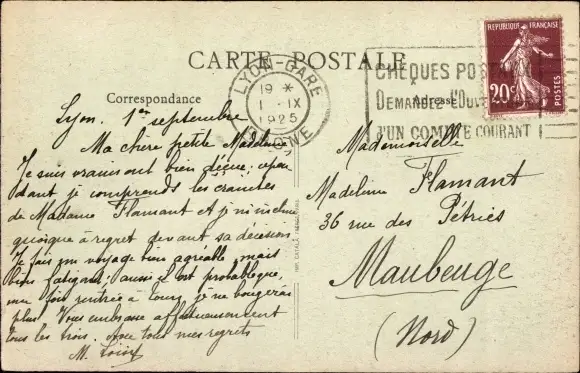 CARTE POSTALE
RÉPUBLIQUE FRANÇAISE
20c
POSTES
LYON-GARE
19 *
1 - IX
1925
RHONE
CHEQUES POSTAUX
DEMANDEZ L'OUV
D'UN COMPTE COURANT
Correspondance
Adresse
Lyon. 1er septembre
Ma chère petite Madeleine
Je suis vraiment bien déçue, cepen
dant je comprends les craintes
de Madame Flamant et je m'incline
quoique à regret devant sa décision
Je fais un voyage bien agréable, mais
bien fatigant; aussi il est probable que,
une fois rentrée à Tours, je ne bougerai
plus. Vous embrasse affectueusement
tous les trois. Avec tous mes regrets
M.
Mademoiselle
Madeleine Flamant
36 rue des Pétries
Maubeuge
(Nord)